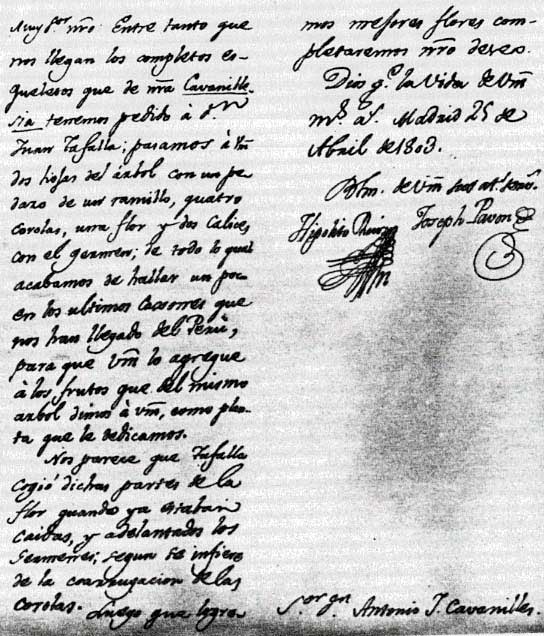 Muy S.or nro. Entre tanto que
nos llegan los completos es-
queletos que de nra Cavanille-
sia tenemos pedido à d.n
Juan Tafalla; pasamos à Vm
dos hojas del árbol con un pe-
dazo de un ramillo, quatro
corolas, una flor y dos Calices
con el germen; de todo lo qual
acabamos de hallar un poc
en los ultimos Caxones que
nos han llegado del Perù,
para que Vm lo agregue
à los frutos que del mismo
arbol dimos à Vm, como plan-
ta que le dedicamos.
Nos parece que Tafalla
cogió dichas partes de la
flor quando ya estaban
caidas, y adelantados los
Germenes; segun se infiere
de la corrugacion de las
corolas. Luego que logre
mos mejores flores com-
pletaremos nro deseo.
Dios g.e la Vida de Vm
m.s a.s Madrid 25 de
Abril de 1803.
Blm. de Vm sus at.s
Hipolito Ruiz Joseph Pavon
S.or d.n Antonio J. Cavanilles.